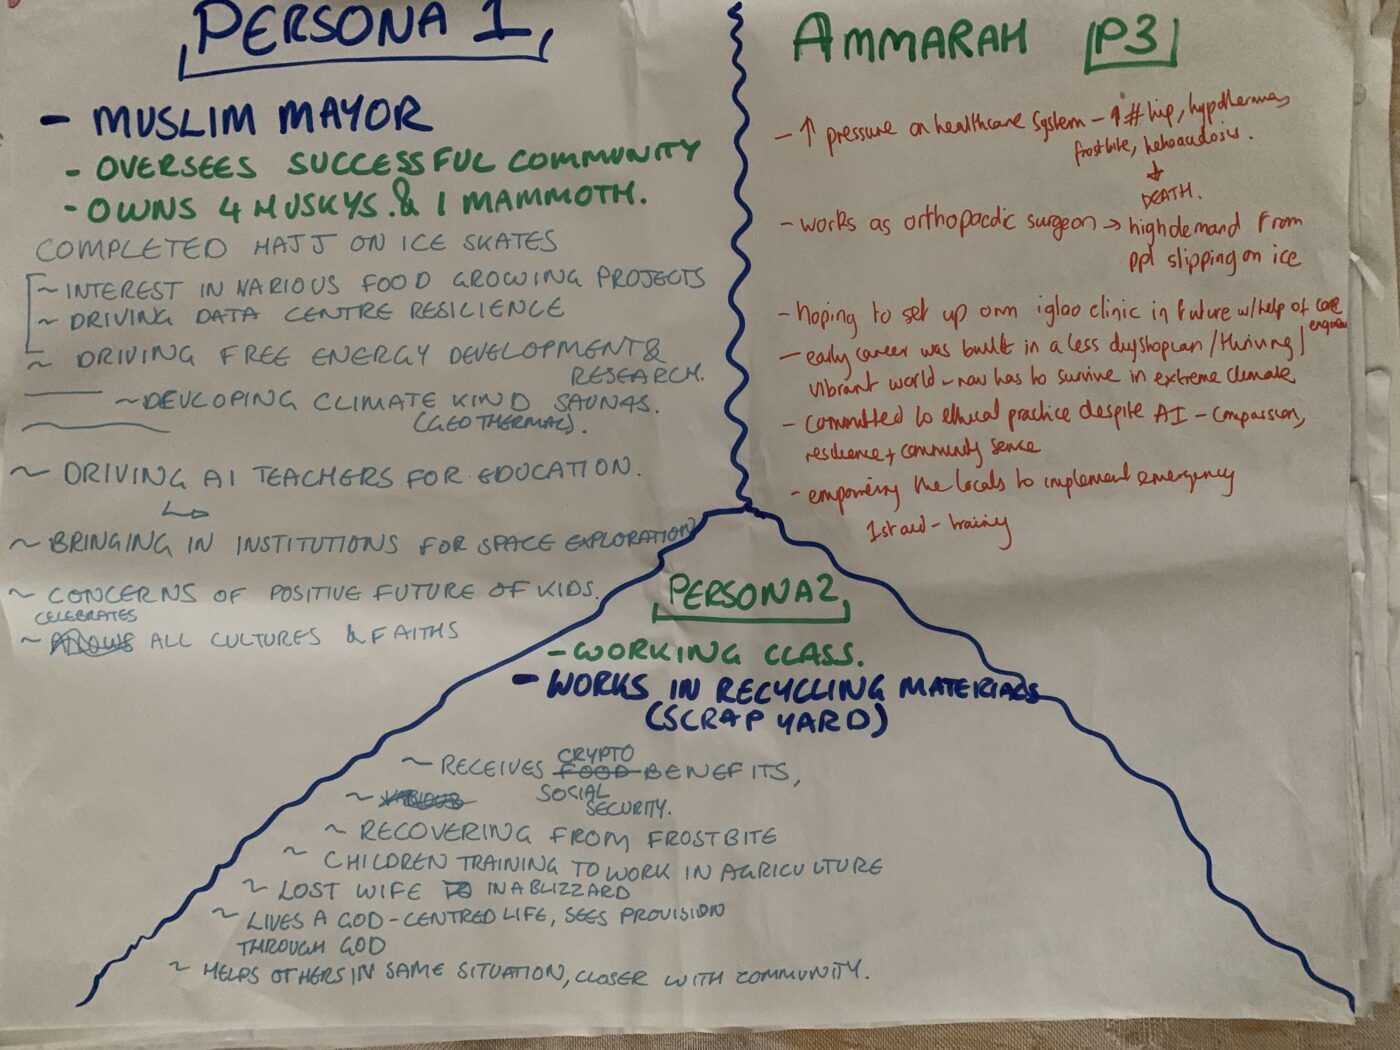 PERSONA 1
- MUSLIM MAYOR
- OVERSEES SUCCESSFUL COMMUNITY
- OWNS 4 HUSKYS & 1 MAMMOTH.
COMPLETED HAJJ ON ICE SKATES
~ INTEREST IN VARIOUS FOOD GROWING PROJECTS
~ DRIVING DATA CENTRE RESILIENCE
~ DRIVING FREE ENERGY DEVELOPMENT &
RESEARCH.
~ DEVLOPING CLIMATE KIND SAUNAS.
(GEOTHERMAL).
~ DRIVING AI TEACHERS FOR EDUCATION.
~ BRINGING IN INSTITUTIONS FOR SPACE EXPLORATION
~ CONCERNS OF POSITIVE FUTURE OF KIDS.
CELEBRATES
~ ALL CULTURES & FAITHS
AMMARAH P3
- ↑ pressure on healthcare system - ↑ # hip, hypothermia,
frostbite, ketoacidosis.
↓
DEATH.
- works as orthopaedic surgeon → high demand from
ppl slipping on ice
- hoping to set up own igloo clinic in future w/help of
- early career was built in a less dyshopian / thriving /
vibrant world - now has to survive in extreme climate
- committed to ethical practice despite AI - compassion,
resilience + community sense
- empowering the locals to implement emergency
1st aid - training
PERSONA 2
- WORKING CLASS.
- WORKS IN RECYCLING MATERIALS
(SCRAP YARD)
CRYPTO
~ RECEIVES FOOD BENEFITS,
SOCIAL
SECURITY.
~ VARIOUS
~ RECOVERING FROM FROSTBITE
~ CHILDREN TRAINING TO WORK IN AGRICULTURE
~ LOST WIFE IN A BLIZZARD
~ LIVES A GOD-CENTRED LIFE, SEES PROVISION
THROUGH GOD
~ HELPS OTHERS IN SAME SITUATION, CLOSER WITH COMMUNITY.